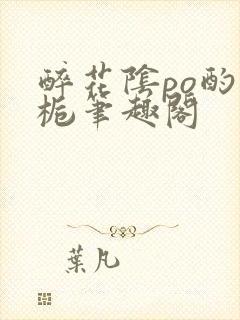 醉花陰po酌
梔筆趣閣
葉凡